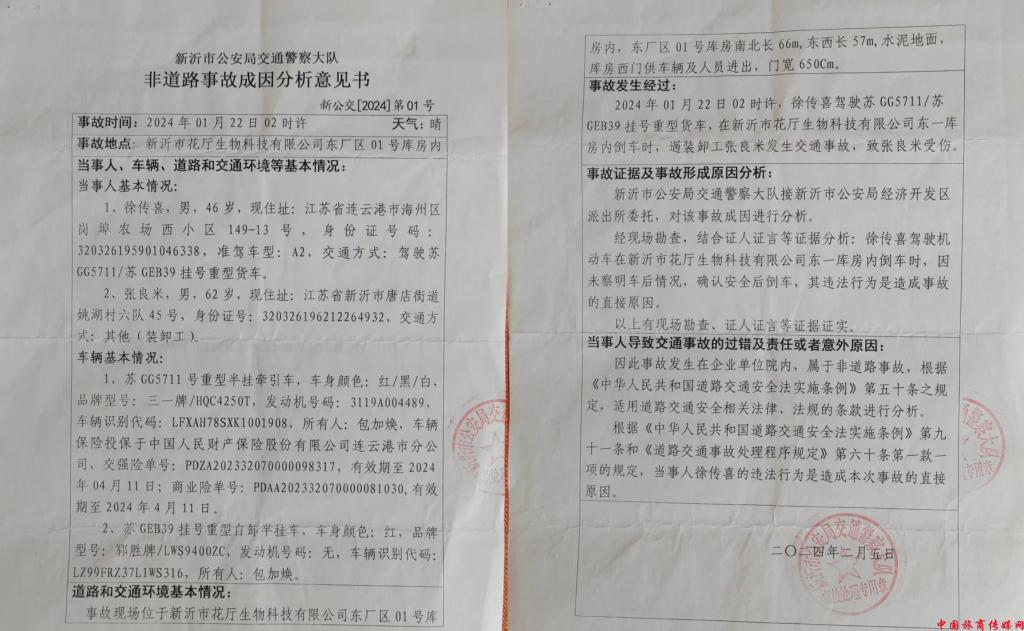 新沂市公安局交通警察大队
非道路事故成因分析意见书
新公交[2024]第01号
事故时间：2024年01月22日02时许 天气：晴
事故地点：新沂市花厅生物科技有限公司东厂区01号库房内
当事人、车辆、道路和交通环境等基本情况：
当事人基本情况：
1、徐传喜，男，46岁，现住址：江苏省连云港市海州区
岗埠农场西小区149-13号，身份证号码：
320326195901046338，准驾车型：A2，交通方式：驾驶苏
GG5711/苏GEB39挂号重型货车。
2、张良米，男，62岁，现住址：江苏省新沂市唐店街道
姚湖村六队45号，身份证号：320326196212264932，交通方
式：其他（装卸工）。
车辆基本情况：
1、苏GG5711号重型半挂牵引车，车身颜色：红/黑/白，
品牌型号：三一牌/HQC4250T，发动机号码：3119A004489，
车辆识别代码：LFXAH78SXK1001908，所有人：包加焕，车辆
保险投保于中国人民财产保险股份有限公司连云港市分公
司，交强险单号：PDZA202332070000098317，有效期至2024
年04月11日；商业险单号：PDAA202332070000081030,有效
期至2024年4月11日。
2、苏GEB39挂号重型自卸半挂车，车身颜色：红，品牌
型号：郓胜牌/LWS9400ZC，发动机号码：无，车辆识别代码：
LZ99FRZ37L1WS316，所有人：包加焕。
道路和交通环境基本情况：
事故现场位于新沂市花厅生物科技有限公司东厂区01号库
房内，东厂区01号库房南北长66m,东西长57m,水泥地面，
库房西门供车辆及人员进出，门宽650Cm。
事故发生经过：
2024年01月22日02时许，徐传喜驾驶苏GG5711/苏
GEB39挂号重型货车，在新沂市花厅生物科技有限公司东一库
房内倒车时，遇装卸工张良米发生交通事故，致张良米受伤。
事故证据及事故形成原因分析：
新沂市公安局交通警察大队接新沂市公安局经济开发区
派出所委托，对该事故成因进行分析。
经现场勘查，结合证人证言等证据分析：徐传喜驾驶机
动车在新沂市花厅生物科技有限公司东一库房内倒车时，因
未察明车后情况，确认安全后倒车，其违法行为是造成事故
的直接原因。
以上有现场勘查、证人证言等证据证实。
当事人导致交通事故的过错及责任或者意外原因：
因此事故发生在企业单位院内，属于非道路事故，根据
《中华人民共和国道路交通安全法实施条例》第五十条之规
定，适用道路交通安全相关法律、法规的条款进行分析。
根据《中华人民共和国道路交通安全法实施条例》第九
十一条和《道路交通事故处理程序规定》第六十条第一款一
项的规定，当事人徐传喜的违法行为是造成本次事故的直接
原因。
二〇二四年二月五日
中国旅商传媒网